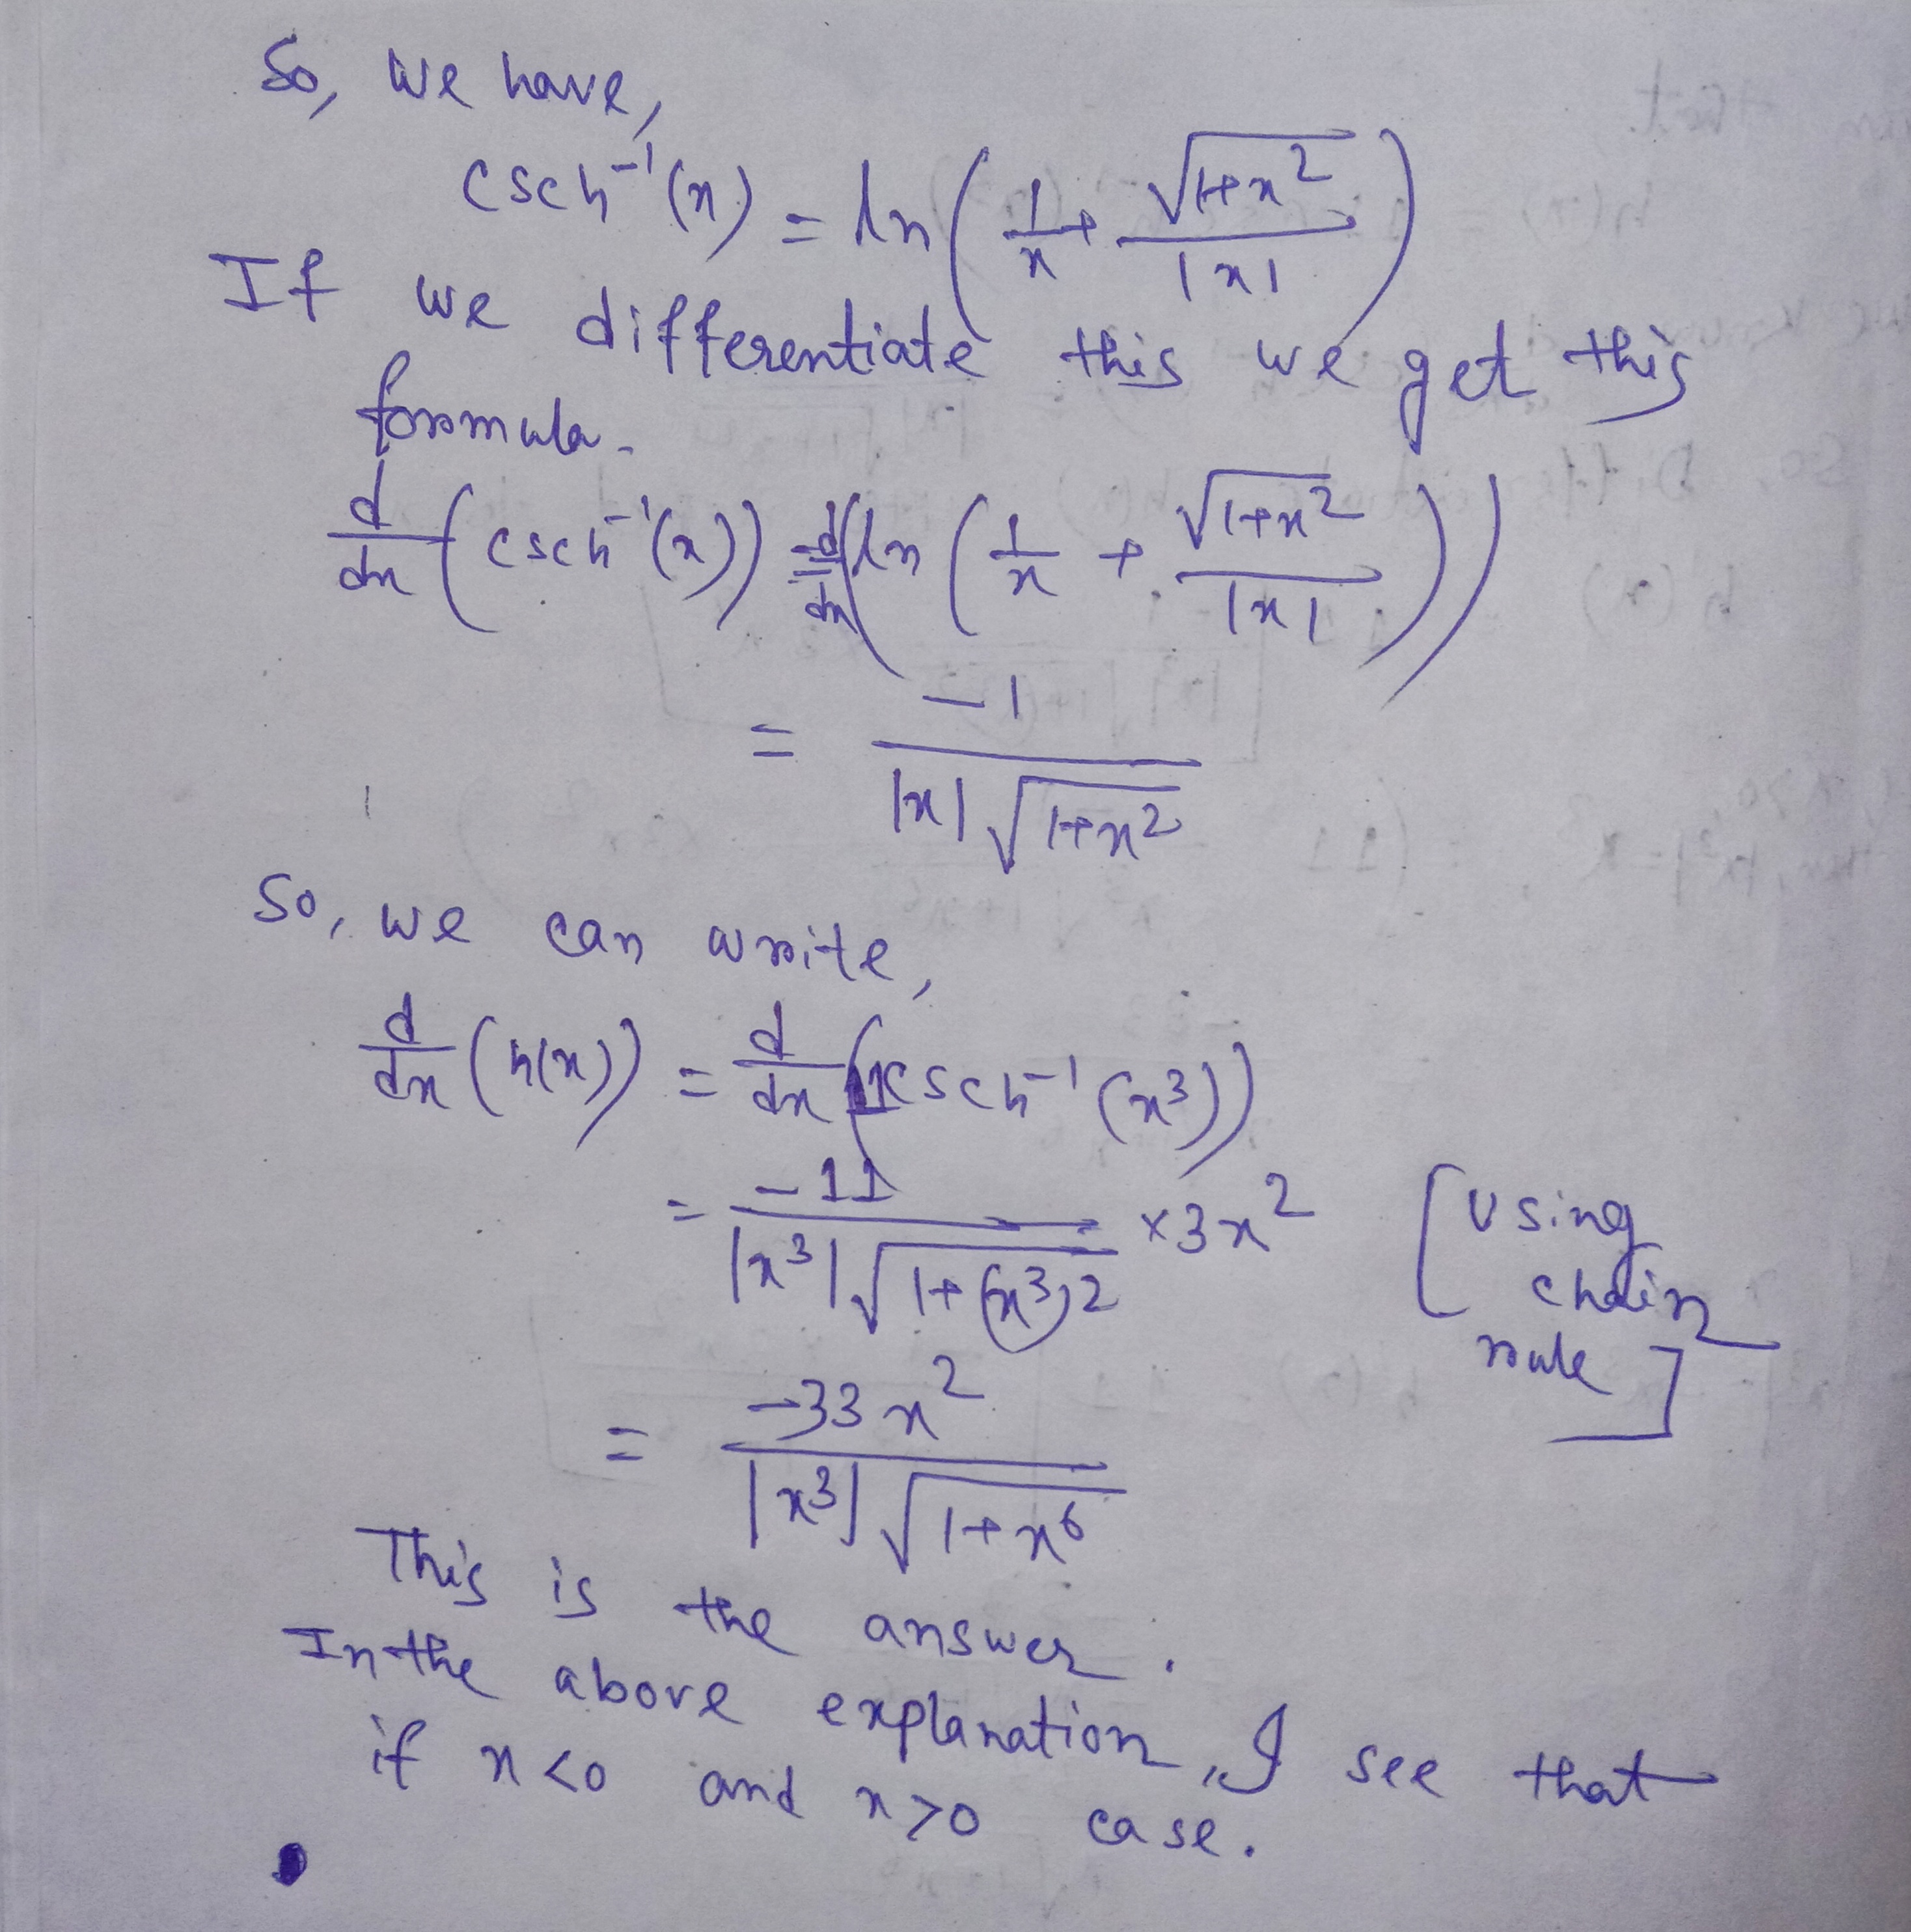 So, we have,
csch⁻¹(x) = ln(1/x + √(1+x²)/|x|)
If we differentiate this we get this
formula.
d/dx (csch⁻¹(x)) = d/dx(ln(1/x + √(1+x²)/|x|))
= -1/(|x|√(1+x²))
So, we can write,
d/dx (h(x)) = d/dx (11csch⁻¹(x³))
= -11/(|x³|√(1+(x³)²)) × 3x² [Using
chain
rule]
= -33x²/(|x³|√(1+x⁶))
This is the answer.
In the above explanation, I see that
if x<0 and x>0 case.